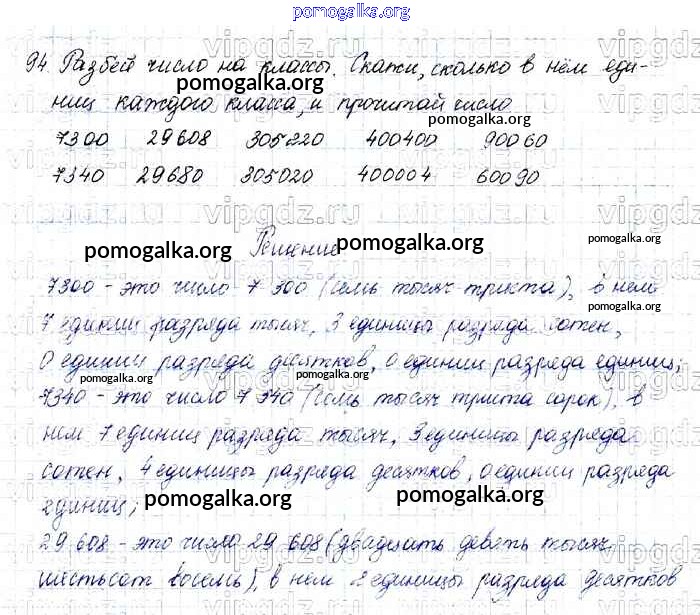 pomogalka.org
94. Разбей число на классы. Скажи, сколько в нём еди-
pomogalka.org
ниц каждого класса, и прочитай число
pomogalka.org
7300 29608 305220 400400 90060
7340 29680 305020 400004 60090
Решение
pomogalka.org pomogalka.org pomogalka.org
7300 - это число 7 300 (семь тысяч триста), в нем
pomogalka.org
7 единиц разряда тысяч, 3 единицы разряда сотен,
0 единиц разряда десятков, 0 единиц разряда единиц;
pomogalka.org pomogalka.org
7340 - это число 7 340 (семь тысяч триста сорок), в
нем 7 единиц разряда тысяч, 3 единицы разряда
сотен, 4 единицы разряда десятков, 0 единиц разряда
единиц;
pomogalka.org pomogalka.org
29 608 - это число 29 608 (двадцать девять тысяч
шестьсот восемь), в нем 2 единицы разряда десятков